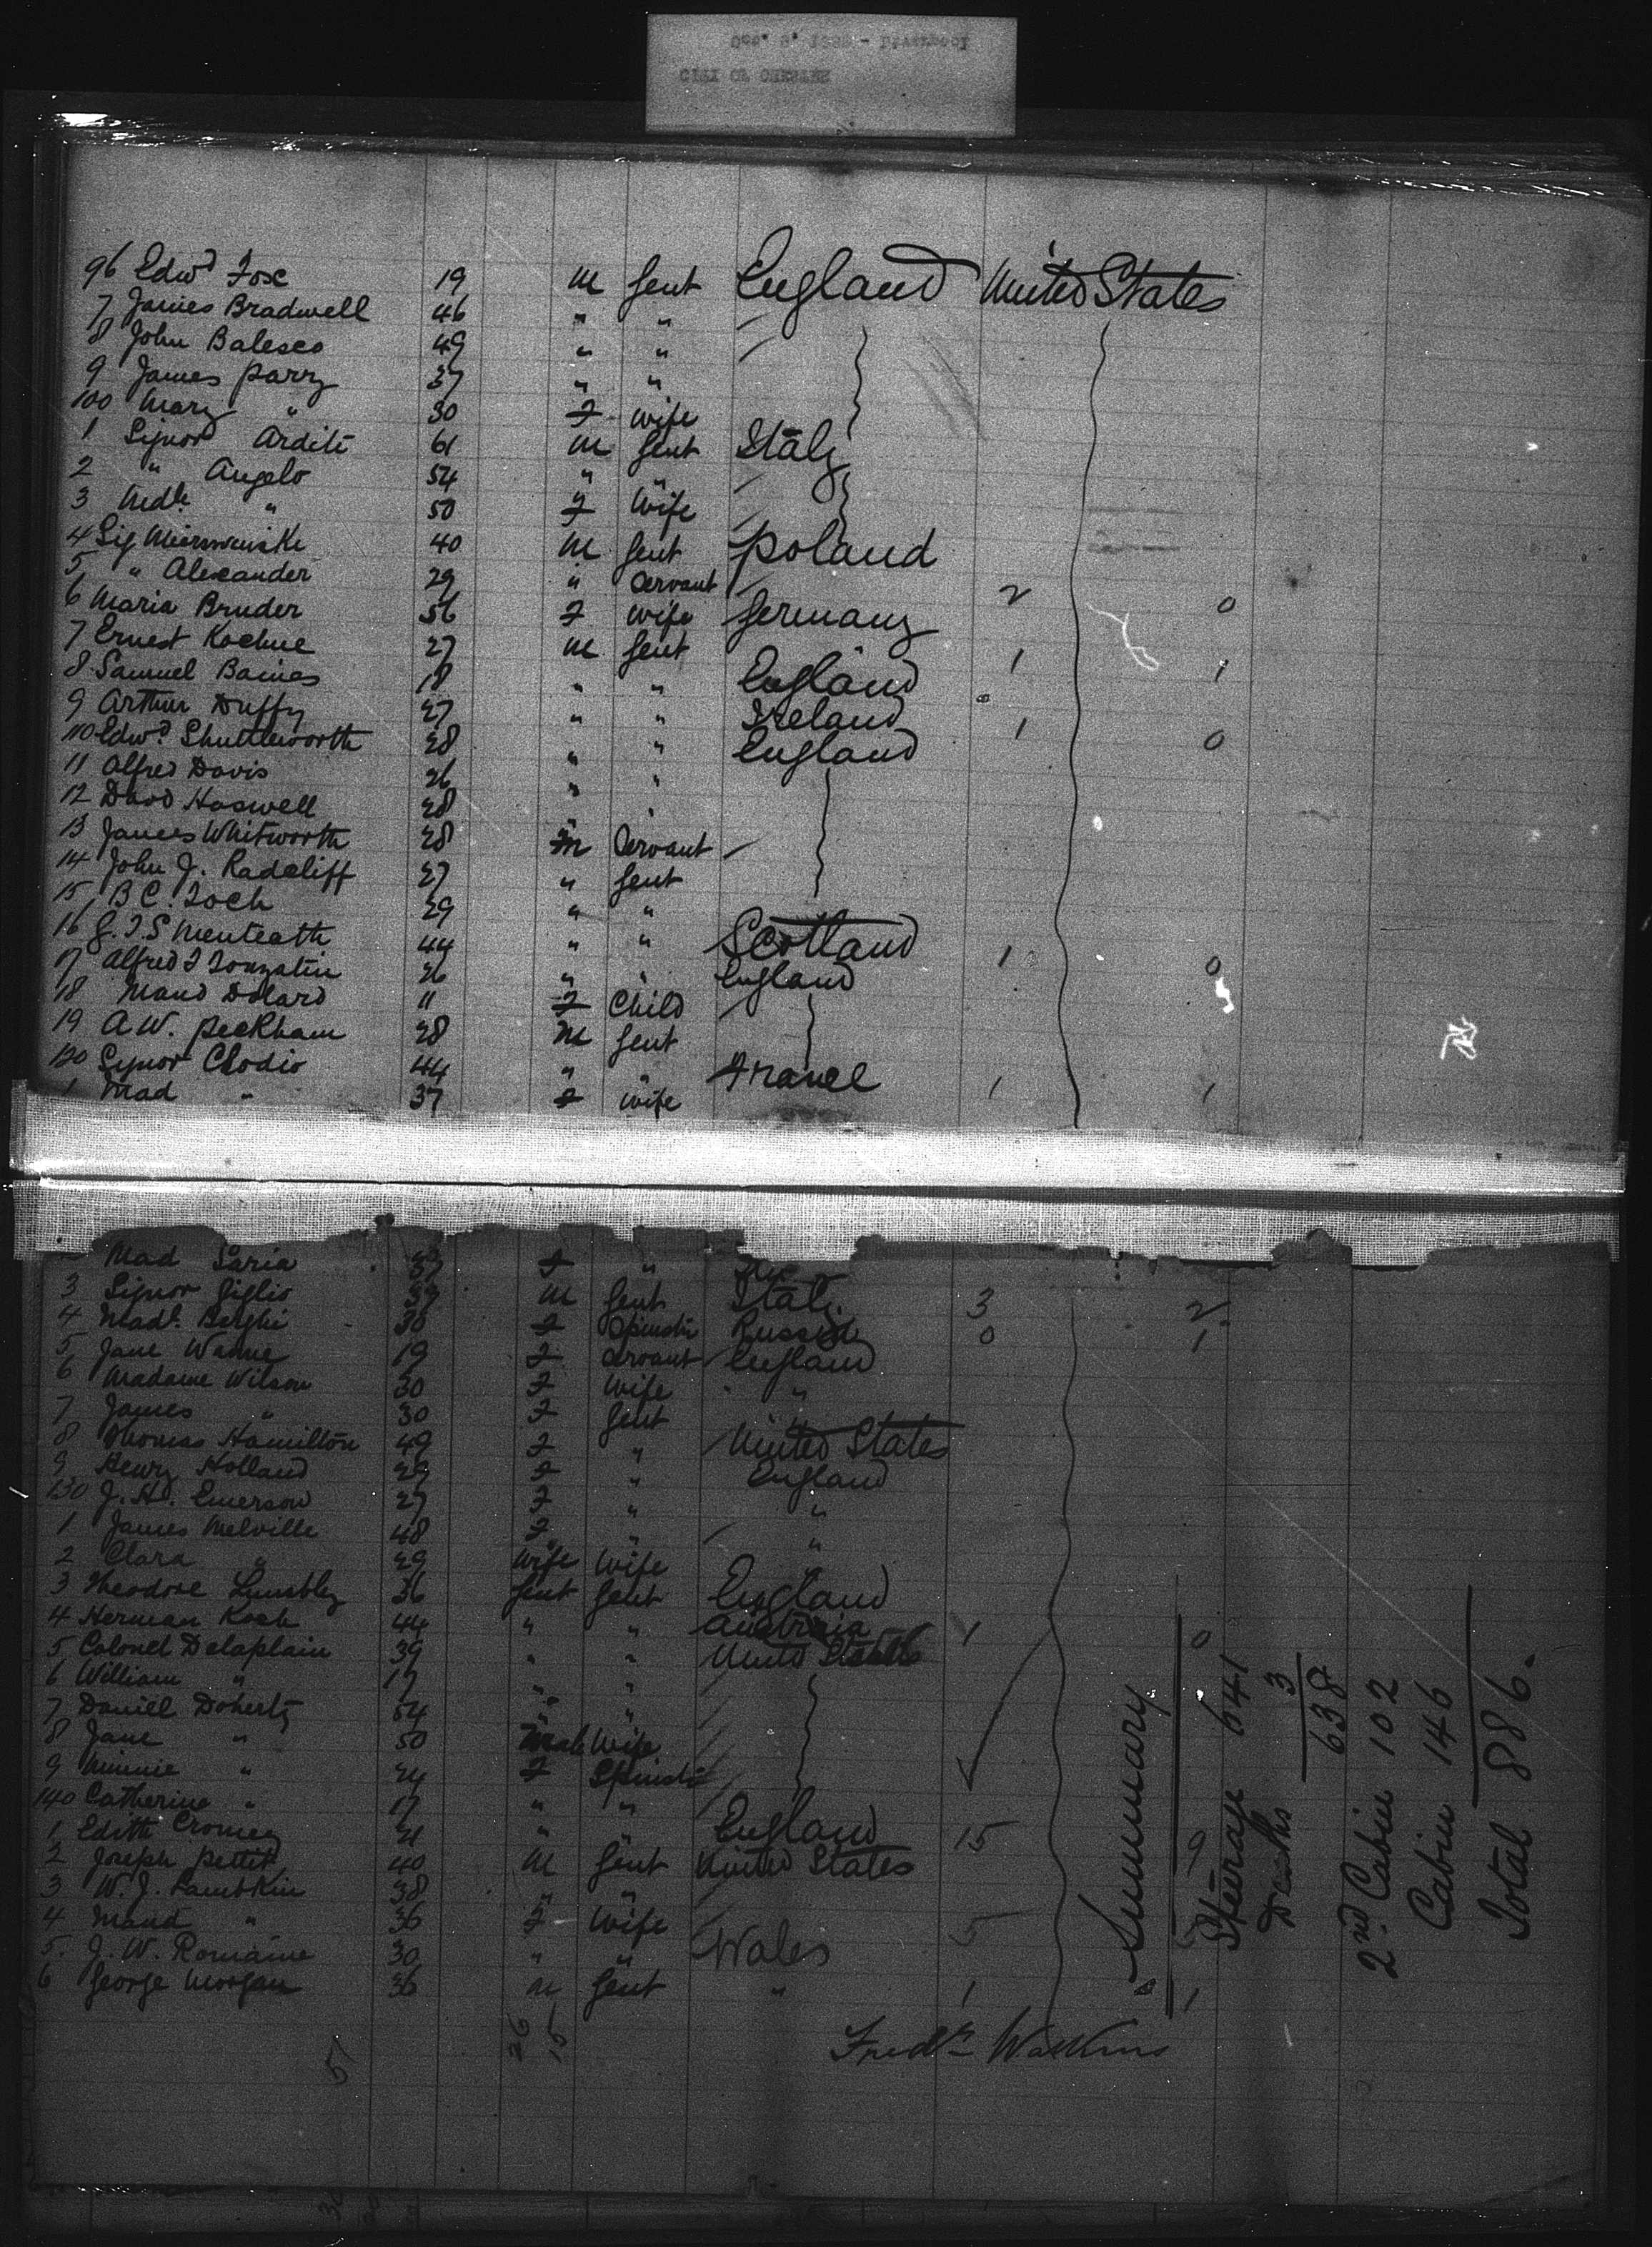 96 Edwd Fox 19 M Gent England United States
7 James Bradwell 46 " "
8 John Balesco 49 " "
9 James Parry 37 " "
100 Mary " 30 F Wife
1 Signor Arditi 61 M Gent Italy
2 " Angelo 54 " "
3 Mdle " 50 F Wife
4 Sig 40 M Gent Poland
5 " Alexander 29 " Servant
6 Maria Bruder 56 F Wife Germany 2 0
7 Ernest Koehne 27 M Gent 1 1
8 Samuel Baines 18 " " England
9 Arthur Duffy 27 " " Ireland 1
110 Edwd. Shuttleworth 28 " " England 0
11 Alfred Davis 26 " "
12 David Haswell 28 " "
13 James Whitworth 28 M Servant
14 John J. Radcliff 27 " Gent
15 B C. 29 " "
16 G. F. S Menteath 44 " " Scotland 1 0
17 Alfred F 26 " " England
18 Maud Dolard 11 F Child
19 A W. Peckham 28 M Gent
120 Signor Clodio 44 " " France 1 1
1 Mad " 37 F Wife
Mad 37 F "
3 Signor Giglio 39 M Gent Italy 3 2
4 Madl. 30 F Spinstr Russia 0 1
5 Jane 19 F Servant England
6 Madame Wilson 30 F Wife "
7 James " 30 F Gent "
8 Thomas Hamilton 49 F " United States
9 Henry Holland 29 F " England
130 J. H. Emerson 27 F " "
1 James Melville 48 F " "
2 Clara " 29 Wife Wife
3 Theodore 36 Gent Gent England
4 Herman Koch 44 " " Austria 1 0
5 Colonel Delaplain 39 " " United States
6 William " 17 " "
7 Daniell Doherty 54 " "
8 Jane " 50 Wife
9 Minnie " 24 F Spinstr
140 Catherine " 17 " "
1 Edith Cromey 21 " " England 15 9
2 Joseph Pettit 40 M Gent United States
3 W. J. Lambkin 38 " "
4 Maud " 36 F Wife 5 5
5. J. W. Romaine 30 " " Wales
6 George Morgan 36 M Gent " 1 1
Fredk Watkins
26
15
5
Summary
Steerage 641
Deaths 3
638
2nd Cabin 102
Cabin 146
Total 886.